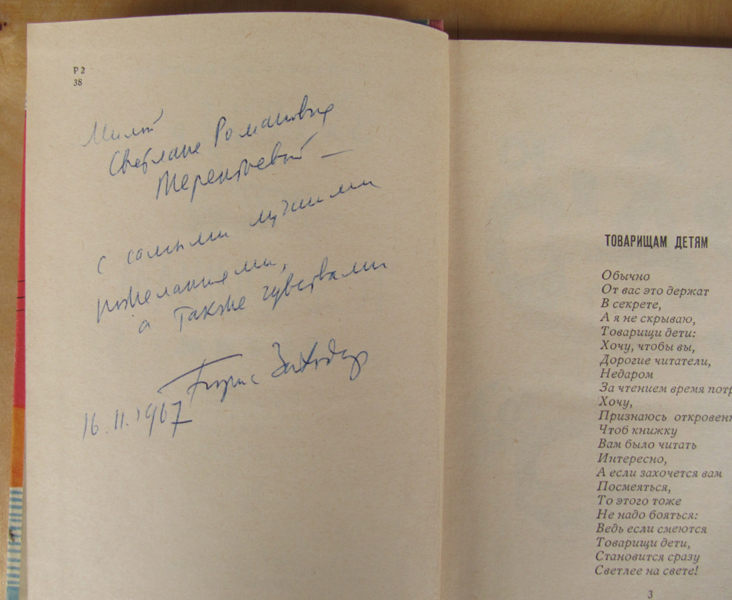 Р 2
38
Милой
Светлане Романовне
Терентьевой —
с самыми лучшими
пожеланиями,
а также чувствами
Борис Заходер
16.11.1967
ТОВАРИЩАМ ДЕТЯМ
Обычно
От вас это держат
В секрете,
А я не скрываю,
Товарищи дети:
Хочу, чтобы вы,
Дорогие читатели,
Недаром
За чтением время потр
Хочу,
Признаюсь откровенн
Чтоб книжку
Вам было читать
Интересно,
А если захочется вам
Посмеяться,
То этого тоже
Не надо бояться:
Ведь если смеются
Товарищи дети,
Становится сразу
Светлее на свете!
3